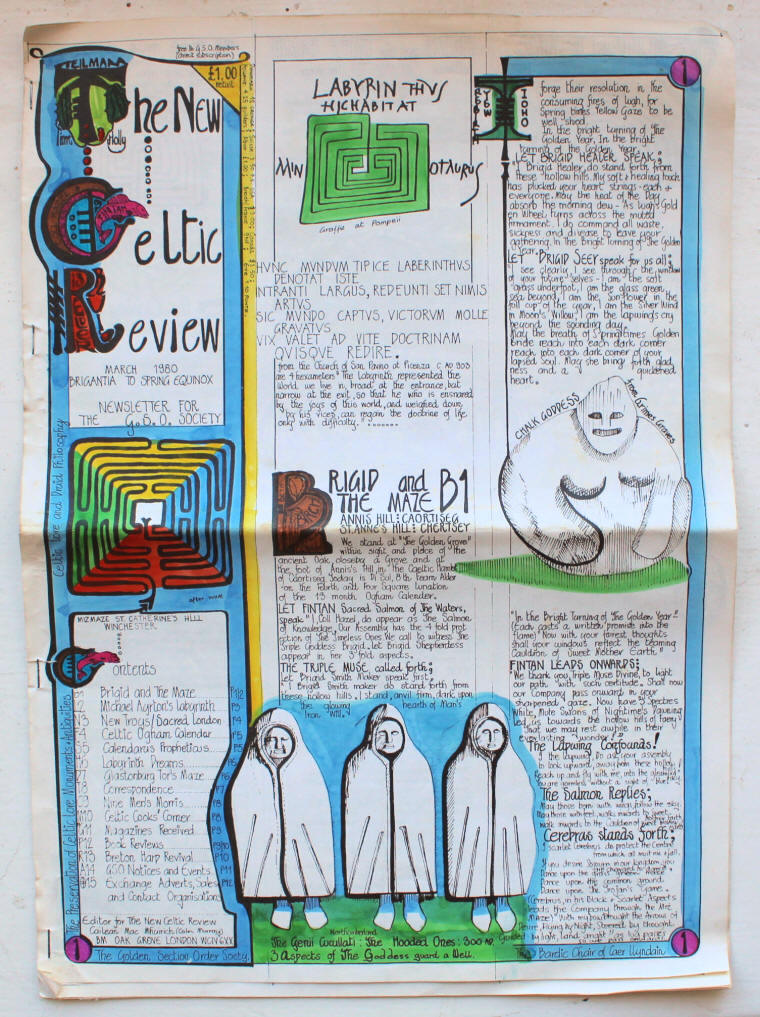 free to G.S.O. Members
(annual subscription)
£1.00
TEILMAN
The New
from Holly
Celtic
Review
MARCH 1980
BRIGANTIA TO SPRING EQUINOX
NEWSLETTER FOR
THE G.S.O. SOCIETY
Celtic Lore and Druid Philosophy
MIZMAZE ST. CATHERINE'S HILL
WINCHESTER
Contents
B1 Brigid and The Maze P1/2
L2 Michael Ayrton's Labyrinth P3
N3 New Troys/Sacred London P4
F4 Celtic Ogham Calender P5
S5 Calendarus Propheticus P5
Labyrinth Dreams
Glastonbury Tor's Maze P6
Correspondence P7
Nine Men's Morris P8
M10 Celtic Cooks' Corner P8
G11 Magazines Received P9
P12 Book Reviews P9/10
R13 Breton Harp Revival P10
GSO Notices and Events P11
Exchange Adverts, Sales P12
and Contact Organisations
Editor for The New Celtic Review
Cailean Mac Mhuirich (Colin Murray)
BM OAK GROVE LONDON WC1V 6XX
The Preservation of Celtic Lore, Monuments & Antiquities
1
The Golden Section Order Society
LABYRINTHUS
HIC HABITAT
MINOTAURUS
Graffe at Pompeii
HVNC MVNDVM TIPICE LABERINTHVS
DENOTAT ISTE
INTRANTI LARGUS, REDEUNTI SET NIMIS
ARTVS
SIC MVNDO CAPTVS, VICTORVM MOLLE
GRAVATVS
VIX VALET AD VITE DOCTRINAM
QVISQVE REDIRE.
from the Church of San Savino at Piacenza C AD 903
are 4 hexameters "The Labyrinth represented the
World we live in, broad at the entrance, but
narrow at the exit, so that he who is ensnared
by the joys of this world, and weighed down
by his vices, can regain the doctrine of life
only with difficulty."
BRIGID and
THE MAZE B1
ANNIS HILL: CAORTISEG
ST. ANNE'S HILL: CHERTSEY
We stand at "The Golden Grove"
within sight and place of the
ancient Oak, closeby a Grove and at
the foot of Annis's Hill, in The Gaeltic Name
of Caortiseg Today is Di Sol, 8th Fearn Alder
on the Fourth and Four Square Lunation
of the 13 month Ogham Calender.
LET FINTAN Sacred Salmon of The Waters,
speak "I, Coll Hazel, do appear as The Salmon
of Knowledge. Our Assembly has the 4 fold prot
ection of The Timeless Ones. We call to witness The
Triple Goddess Brigid. Let Brigid Shepherdess
appear in her 3 fold aspects.
THE TRIPLE MUSE called forth;
Let Brigid Smith Maker speak first.
"I Brigid Smith maker do stand forth from
these hollow hills. I stand, anvil firm, dark upon
the glowing hearth of Man's
Iron Will.
Northumberland
The Genii Cucullati: The Hooded Ones: 300 AD.
3 Aspects of The Goddess guard a Well.
1
forge their resolution in the
consuming fires of Lugh, for
Spring times Yellow Gaze to be
well shod.
In the bright turning of The
Golden Year, In the Bright
turning of the Golden Year.
LET BRIGID HEALER SPEAK;
"I Brigid Healer, do stand forth from
these hollow hills. My soft & healing touch
has plucked your heart strings - each &
everyone. May the heat of the Day
absorb the morning dew - As Lugh's Gold
en Wheel turns across the muted
firmament. I do command all waste,
sickness and disease to leave your
gathering, In The Bright Turning of The Golden
Year."
LET BRIGID SEER speak for us all;
"I see clearly, I see through the window
of your future selves - I am the soft
grass underfoot, I am the glass green
sea beyond, I am the Sun-flower in the
foil cup of the crow, I am the Silver Wind
in Moon's Willow, I am the lapwing's cry
beyond the sounding day.
May the breath of Springtimes Golden
bride reach into each dark corner
reach into each dark corner of your
lapsed Soul. May she bring forth glad
ness and a quickened
heart.
CHALK GODDESS
from Grimes Graves
"In the Bright Turning of The Golden Year"
(Each casts a written promise into the
flame) "Now with your fairest thoughts
shall your windows reflect the teeming
Cauldron of Sweet Mother Earth."
FINTAN LEADS ONWARDS;
"We thank you, Triple Muse Divine, to light
our path with such certitude. Shall now
our Company pass onward in your
sharpened gaze. Now have 3 Spectres
White, Mute Swans of Nightime's Dawning
led us towards the hollow hills of faery
that we may rest awhile in their
everlasting wonder!"
The Lapwing Confounds!
The Salmon Replies;
Cerebrus stands forth;
"I Scarlet Cerebrus do protect the Centre
from which all must rise & fall.
Dance upon this common ground
Dance upon the Trojan's Game."
Cerebrus, in his Black & Scarlet Aspects
leads the Company through the
The Bardic Chair of Caer Llyndain
1